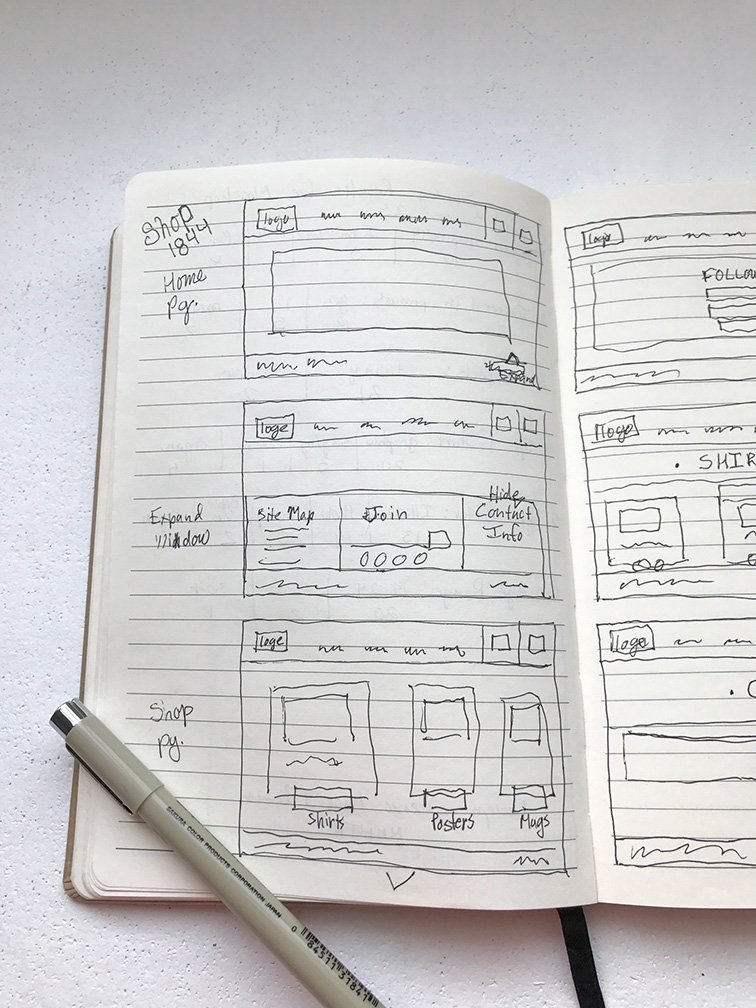 Shop
1844
Home
Pg.
logo
Expand
Expand
Window
loge
Site Map
Join
Hide
Contact
Info
Shop
pg.
loge
Shirts
Posters
Mugs
logo
FOLLOW
logo
• SHIR
logo
• C
SAKURA COLOR PRODUCTS CORPORATION JAPAN
0 84511 31841